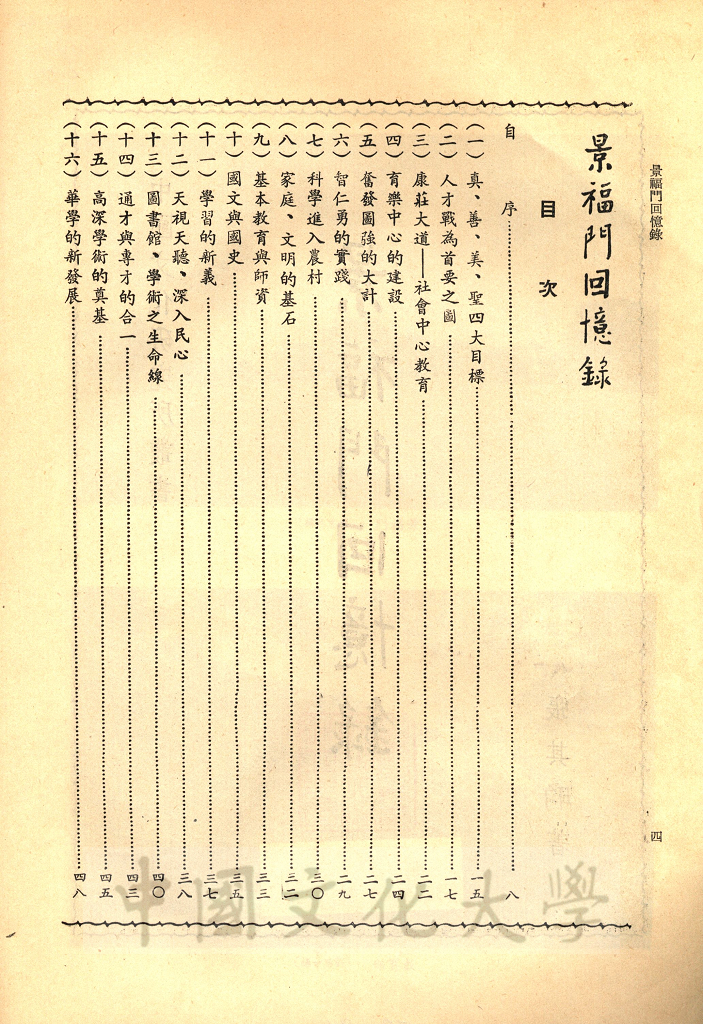 景福門回憶錄
四
景福門回憶錄
目次
自序……八
(一) 真、善、美、聖四大目標……一五
(二) 人才戰為首要之圖……一七
(三) 康莊大道——社會中心教育……二二
(四) 育樂中心的建設……二四
(五) 奮發圖強的大計……二七
(六) 智仁勇的實踐……二九
(七) 科學進入農村……三〇
(八) 家庭、文明的基石……三二
(九) 基本教育與師資……三三
(十) 國文與國史……三五
(十一) 學習的新義……三七
(十二) 天視天聽、深入民心……三八
(十三) 圖書館、學術之生命線……四〇
(十四) 通才與專才的合一……四三
(十五) 高深學術的奠基……四五
(十六) 華學的新發展……四八
中國文化大學